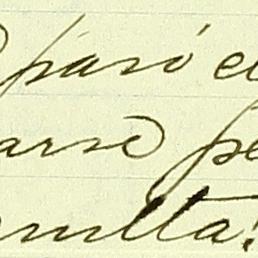 pasó el
arse pe
multa!